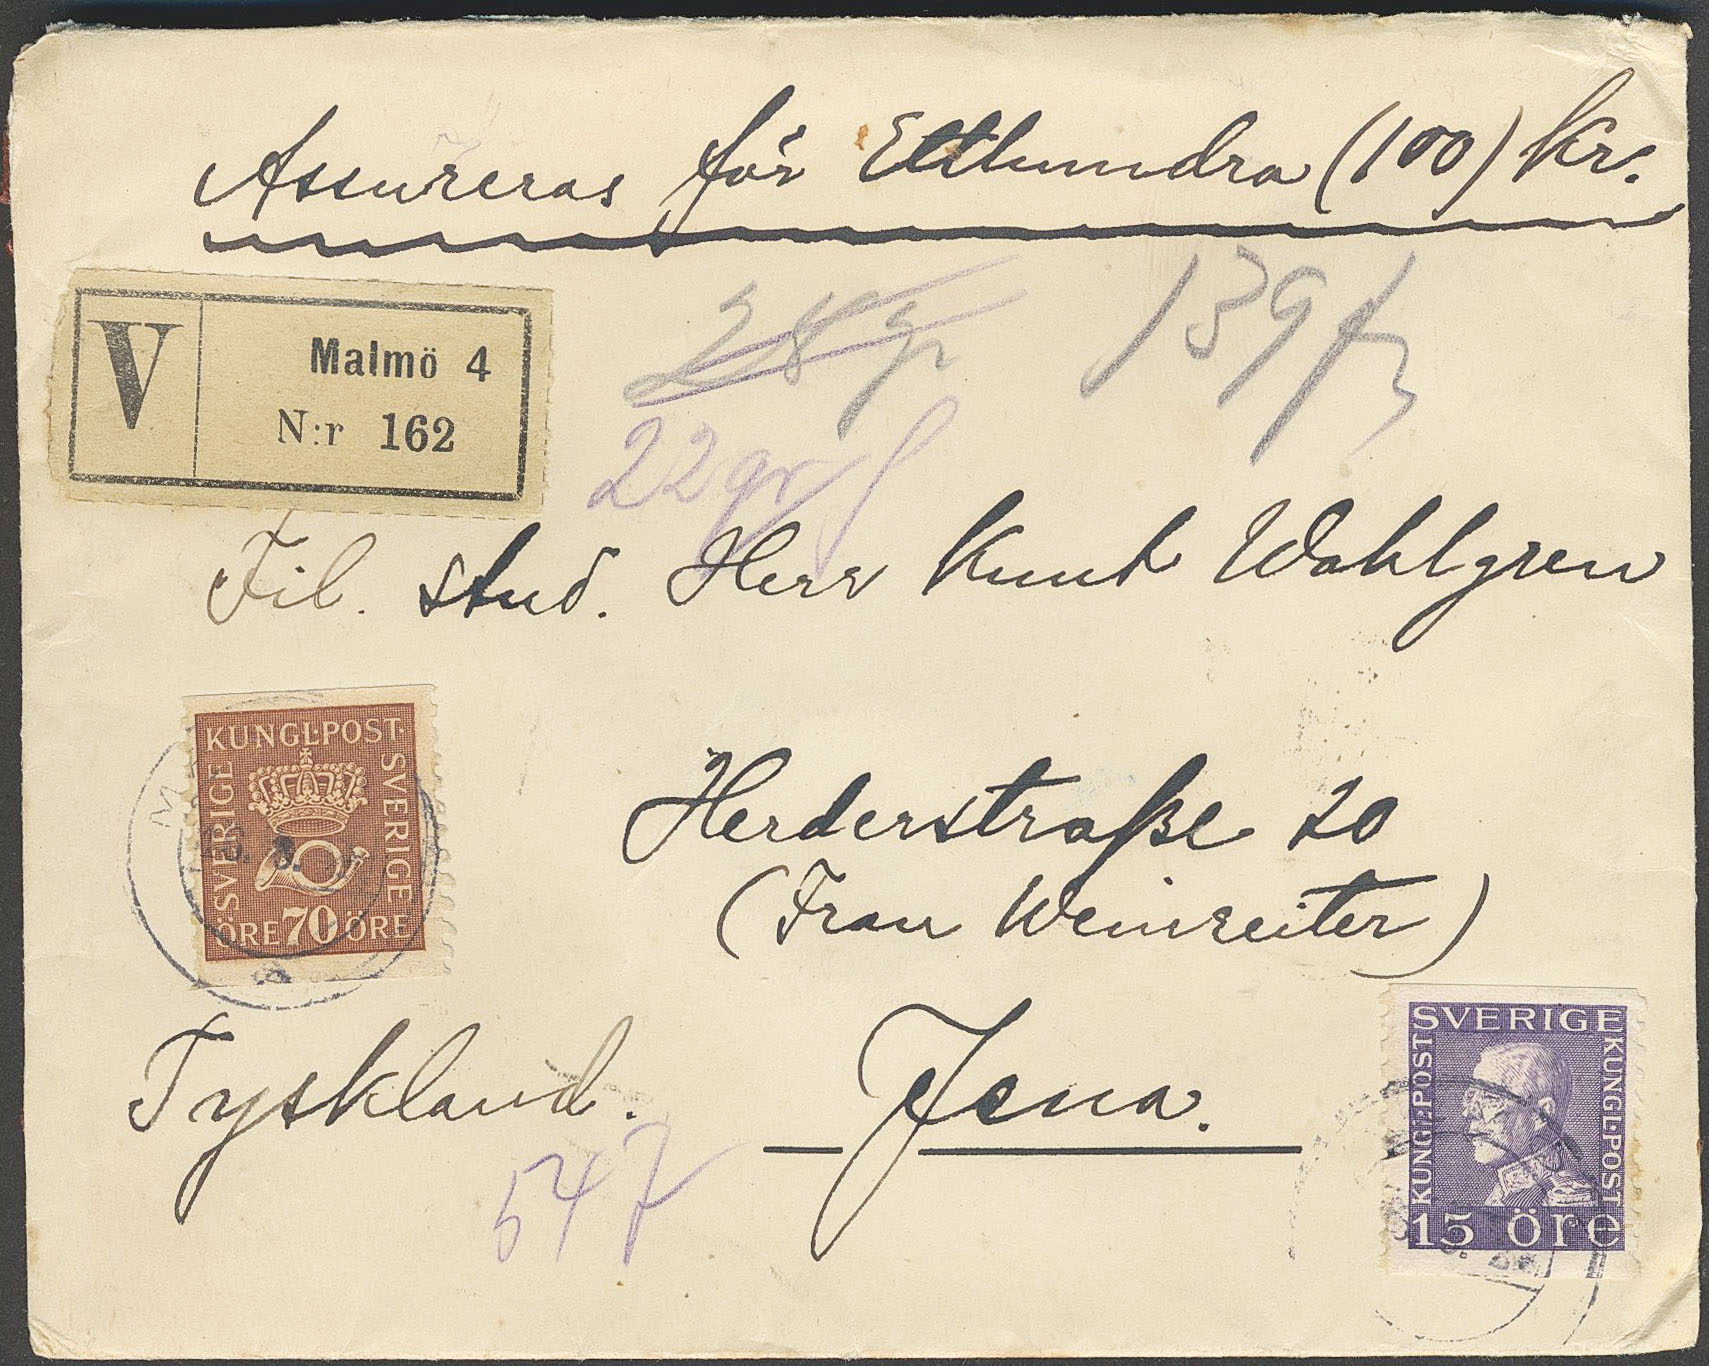 Assureras för Etthundra (100) kr.
V
Malmö 4
N:r 162
28 gr
139 fr
22 gr
Fil. stud. Herr Knut Wahlgren
KUNGL.POST.
SVERIGE
SVERIGE
ÖRE 70 ÖRE
Herderstraße 20
(Frau Weinreiter)
Tyskland.
Jena.
547
SVERIGE
KUNGL.POST
KUNGL.POST
15 öre